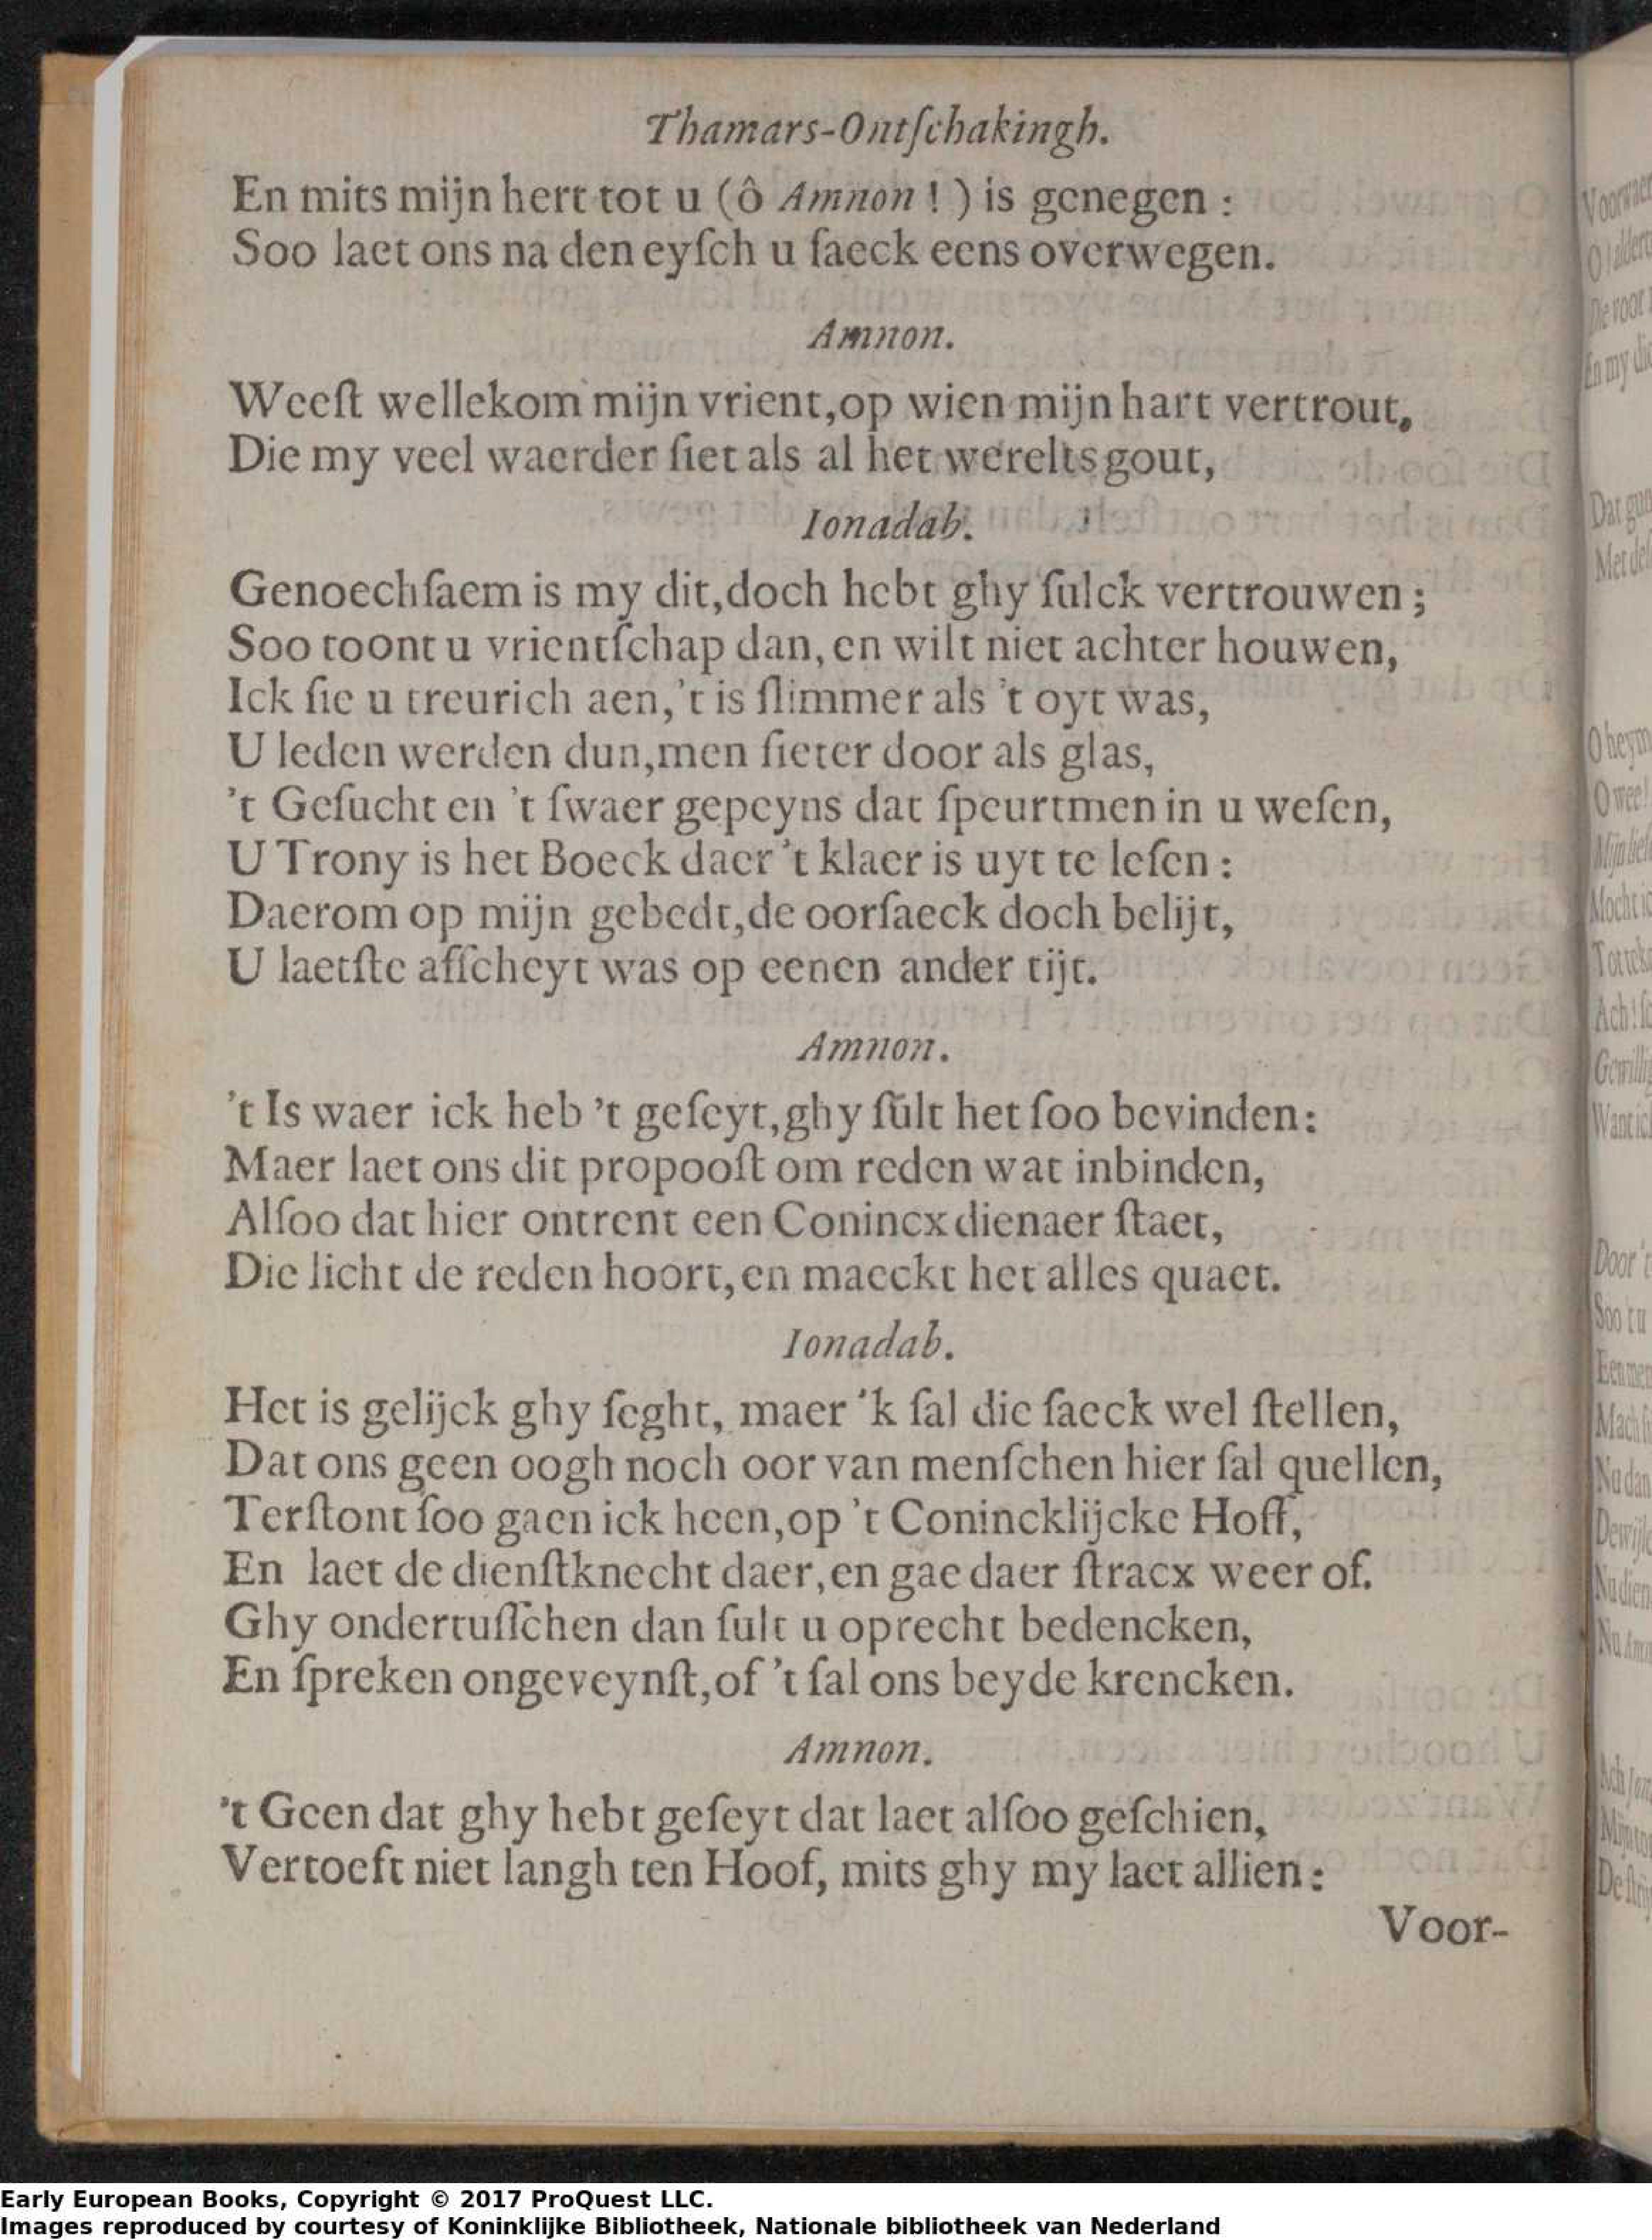 Thamars-Ontſchakingh.
En mits mijn hert tot u (ô Amnon ! ) is genegen :
Soo laet ons na den eyſch u ſaeck eens overwegen.
Amnon.
Weeſt wellekom mijn vrient,op wien mijn hart vertrout,
Die my veel waerder ſiet als al het werelts gout,
Ionadab.
Genoechſaem is my dit,doch hebt ghy ſulck vertrouwen ;
Soo toont u vrientſchap dan, en wilt niet achter houwen,
Ick ſie u treurich aen,'t is ſlimmer als 't oyt was,
U leden werden dun,men ſieter door als glas,
't Geſucht en 't ſwaer gepeyns dat ſpeurtmen in u weſen,
U Trony is het Boeck daer 't klaer is uyt te leſen :
Daerom op mijn gebedt,de oorſaeck doch belijt,
U laetſte afſcheyt was op eenen ander tijt.
Amnon.
't Is waer ick heb 't geſeyt,ghy ſult het ſoo bevinden:
Maer laet ons dit propooſt om reden wat inbinden,
Alſoo dat hier ontrent een Conincx dienaer ſtaet,
Die licht de reden hoort,en maeckt het alles quaet.
Ionadab.
Het is gelijck ghy ſeght, maer 'k ſal die ſaeck wel ſtellen,
Dat ons geen oogh noch oor van menſchen hier ſal quellen,
Terſtont ſoo gaen ick heen,op 't Conincklijcke Hoff,
En laet de dienſtknecht daer,en gae daer ſtracx weer of.
Ghy ondertuſſchen dan ſult u oprecht bedencken,
En ſpreken ongeveynſt,of 't ſal ons beyde krencken.
Amnon.
't Geen dat ghy hebt geſeyt dat laet alſoo geſchien,
Vertoeft niet langh ten Hoof, mits ghy my laet allien :
Voor-
Early European Books, Copyright © 2017 ProQuest LLC.
Images reproduced by courtesy of Koninklijke Bibliotheek, Nationale bibliotheek van Nederland